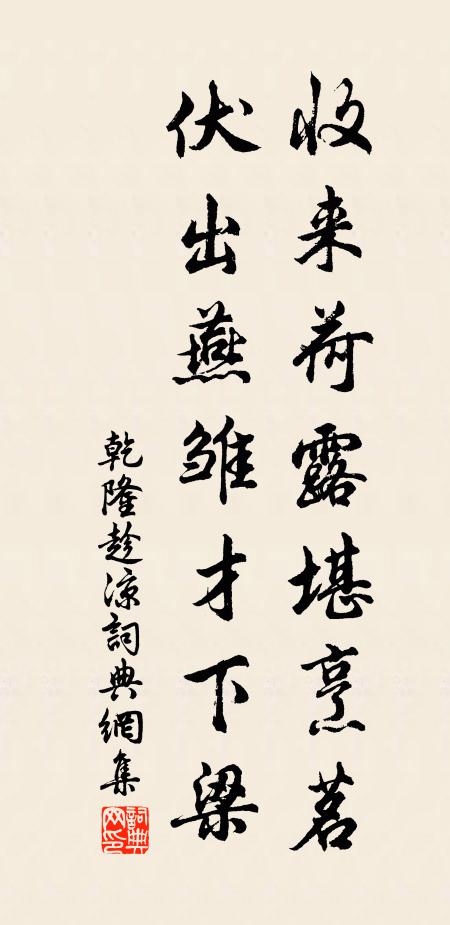 收来荷露堪烹茗
伏出燕雏才下梁
乾隆趁涼詞典網集
詞典
网印